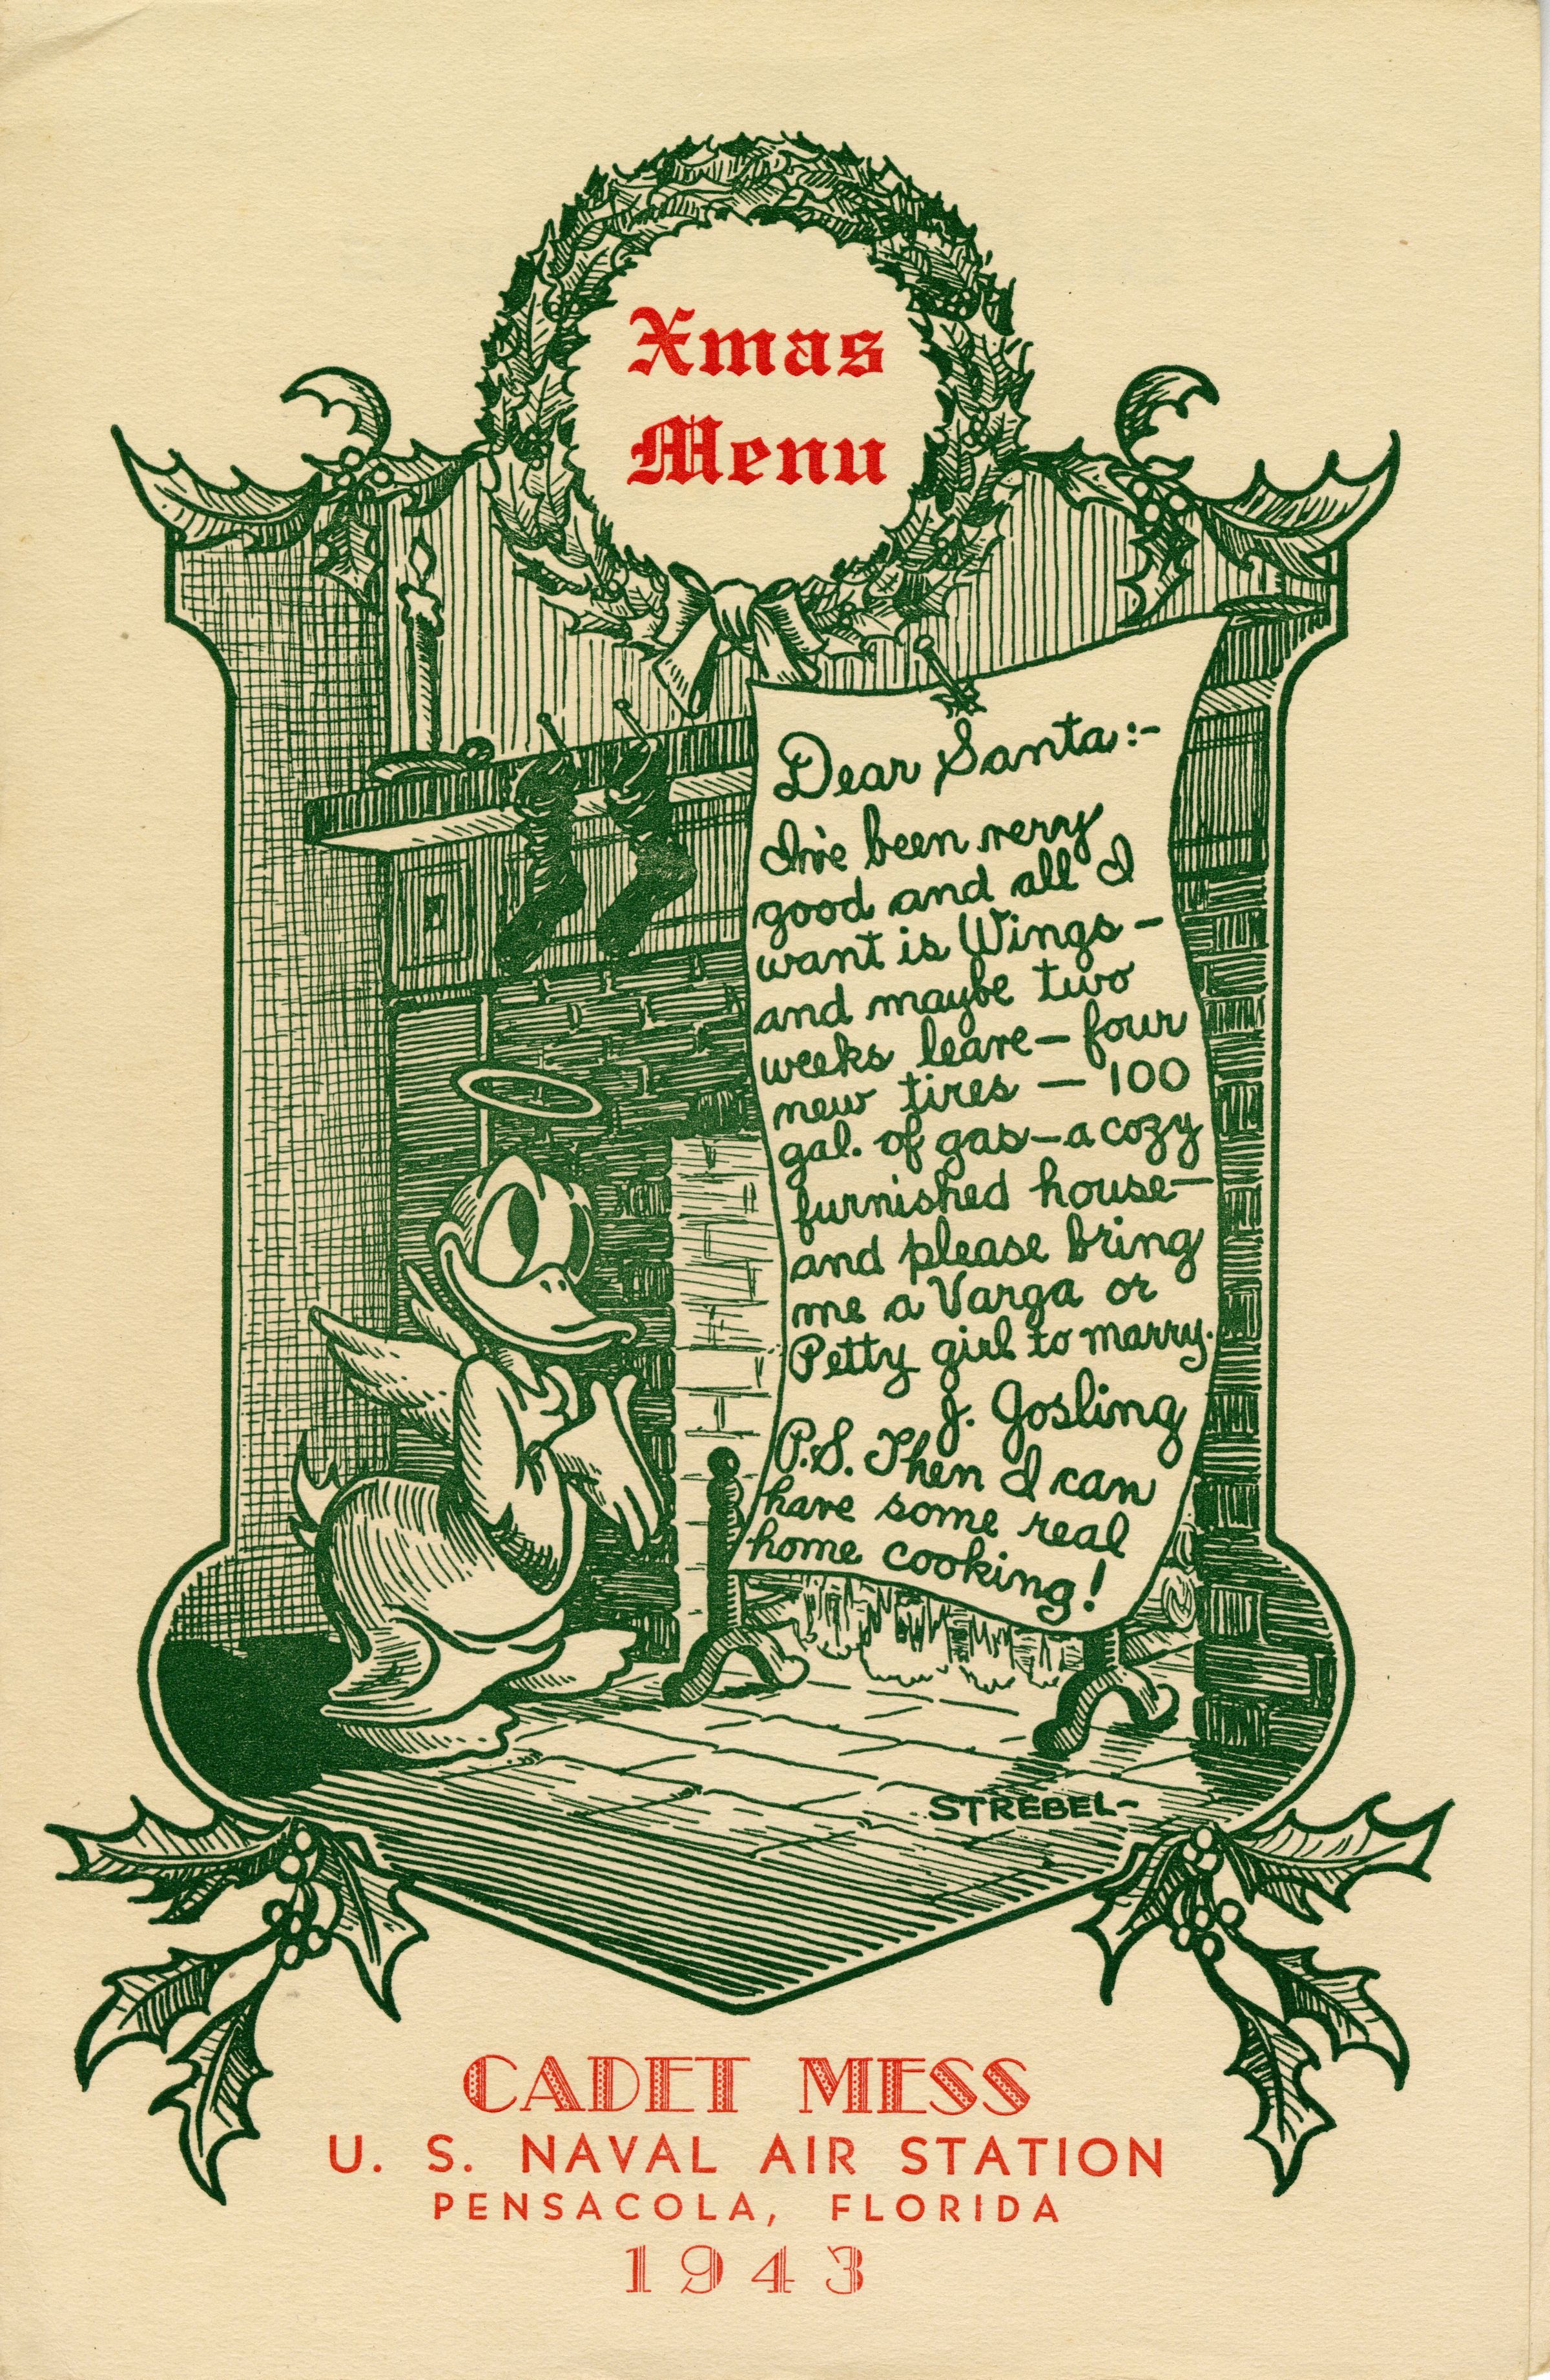 Xmas
Menu
Dear Santa:-
I've been very
good and all I
want is Wings -
and maybe two
weeks leave - four
new tires - 100
gal. of gas - a cozy
furnished house -
and please bring
me a Varga or
Petty girl to marry.
J. Gosling
P.S. Then I can
have some real
home cooking!
STREBEL-
CADET MESS
U. S. NAVAL AIR STATION
PENSACOLA, FLORIDA
1943